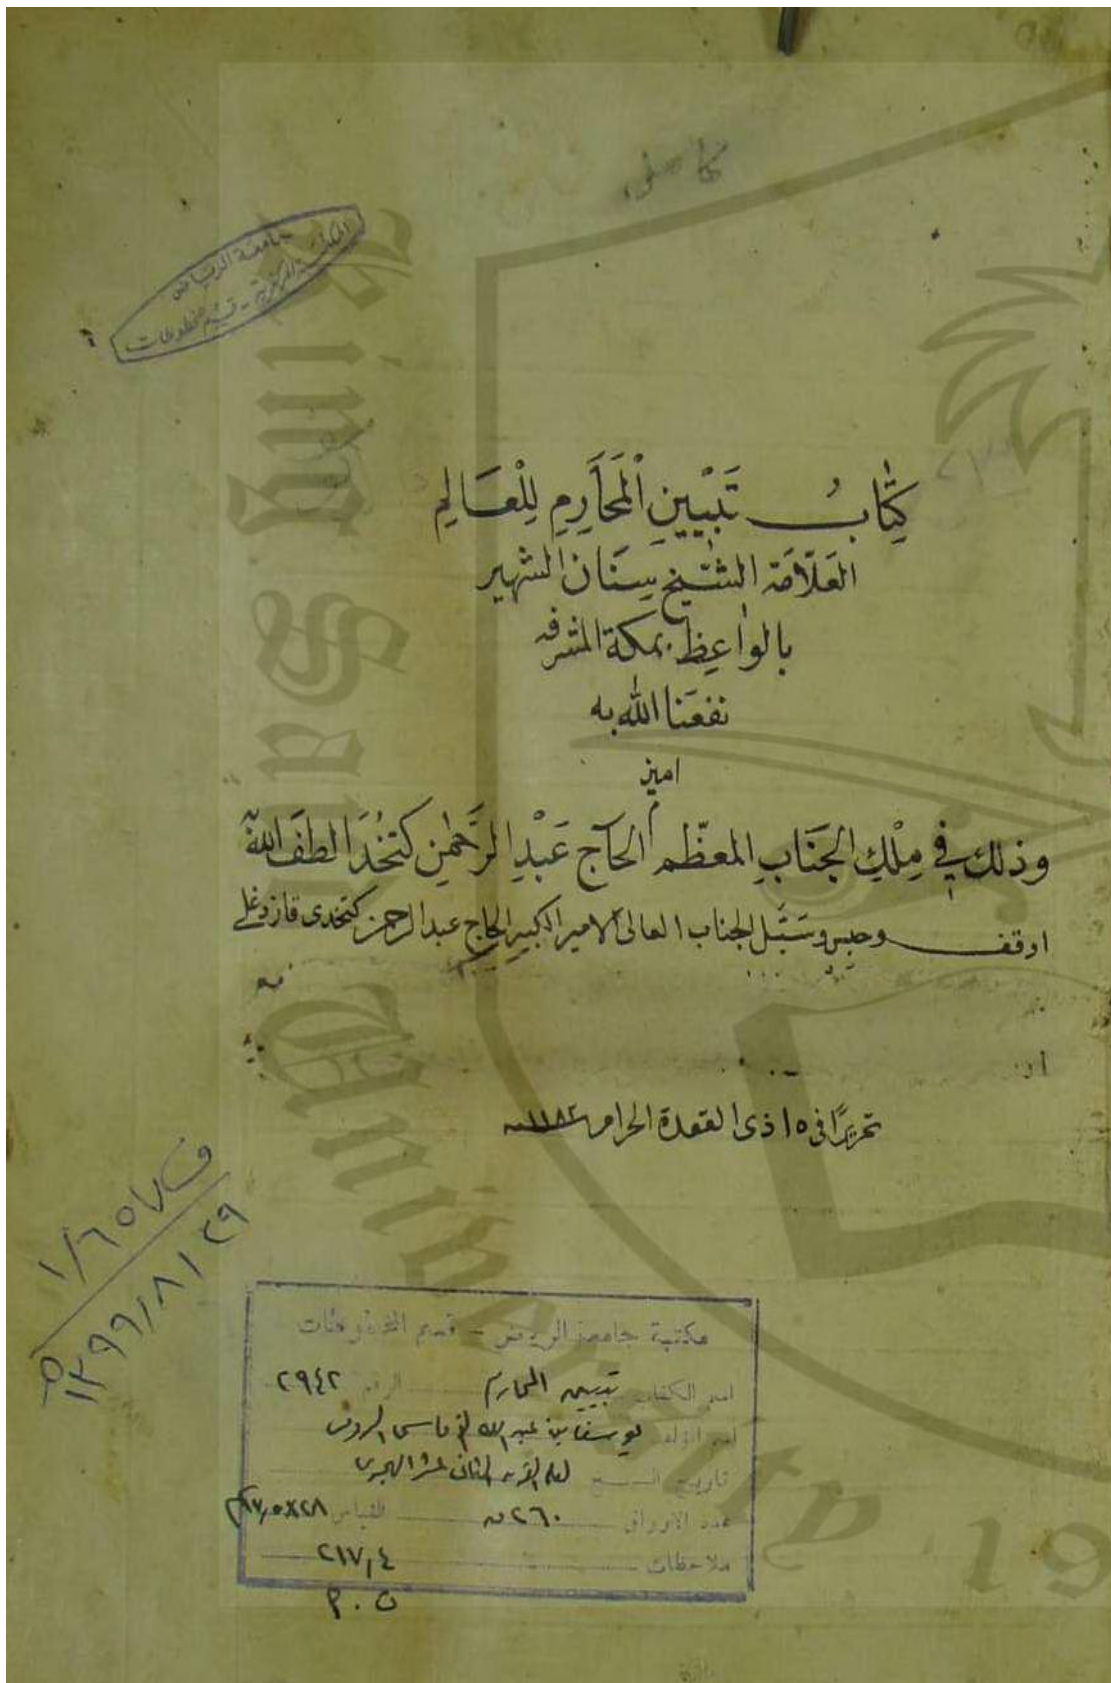 كامل
جامعة الرياض
المكتبة المركزية - قسم المخطوطات
كِتَابُ تَبْيِينِ الْمَحَارِمِ لِلْعَالِمِ
العَلّامَة الشّيخ سِنَان الشهير
بالواعِظ بمكة المشرفه
نفعَنا الله به
امين
وذلك في مِلْكِ الجَنَابِ المعظّم الحاج عَبْدِ الرَّحْمٰنِ كتخُدَا لطفَ اللهُ
اوقف وحبس وسَبَّل الجناب العالى الامير الكبير الحاج عبد الرحمن كتخدى قازدغلى
تحريرًا فى ١٥ ذى القعدة الحرام سنة ١١٨٢
ف ١/٦٥٧
١٣٩٩/٨/٢٩
مكتبة جامعة الرياض - قسم المخطوطات
اسم الكتاب تبيين المحارم الرقم ٢٩٤٢
اسم المؤلف يوسف بن عبدالله الرومى
تاريخ النسخ لعله القرن الثانى عشر الهجرى
عدد الاوراق ٢٦٠ ق القياس
ملاحظات ٢١٧,٤
ت.م
King Saud University